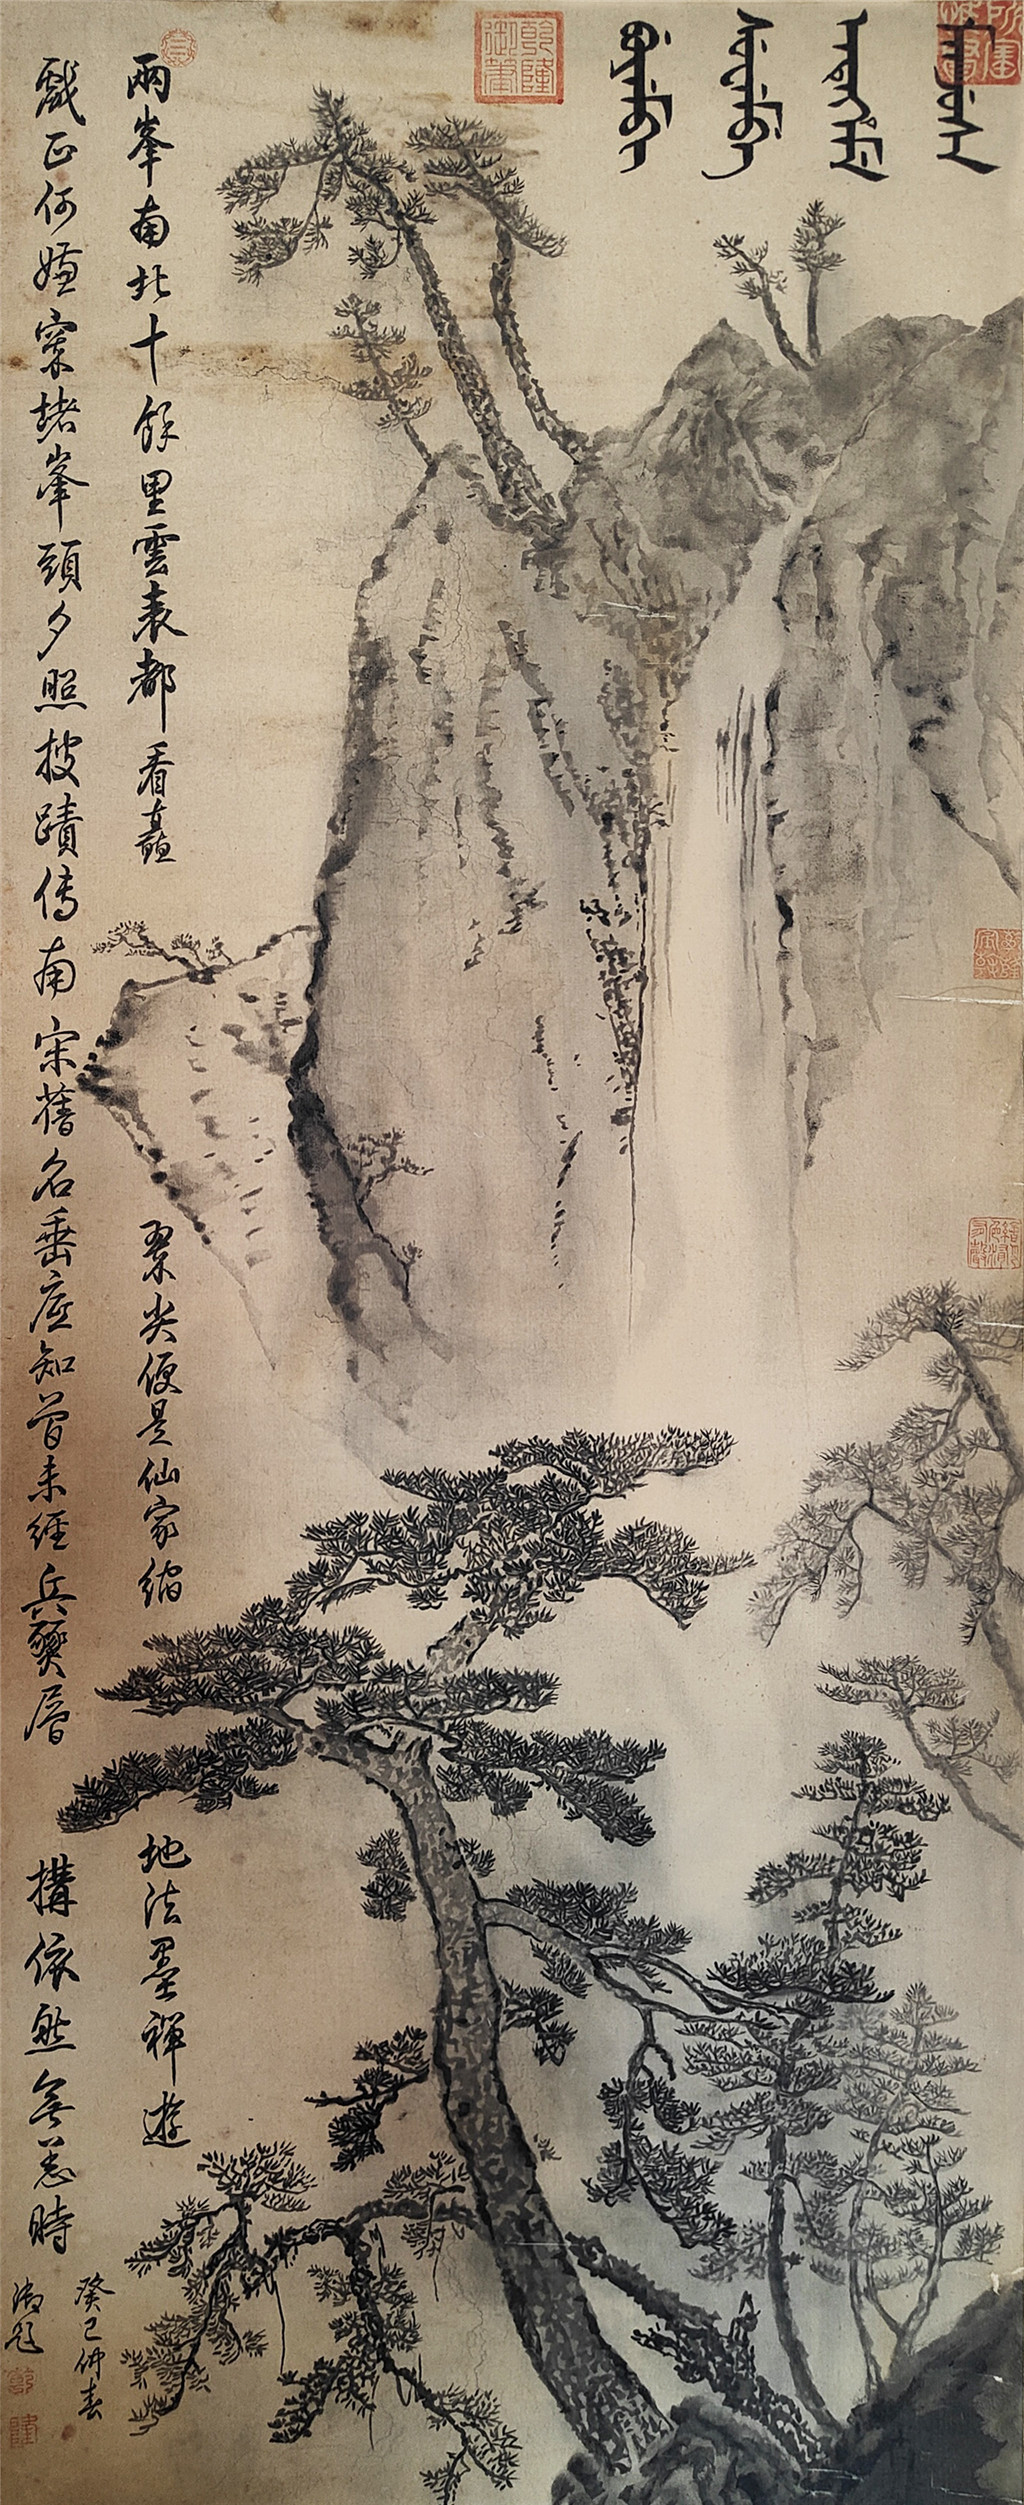 乾隆御筆
兩峯南北十餘里雲表都看矗翠尖便是仙家縮地法墨禪遊
戲正何嫌窣堵峯頭夕照披蹟傳南宋舊名垂應知曾未經兵燹層構依然無恙時
癸巳仲春
御題
乾
隆